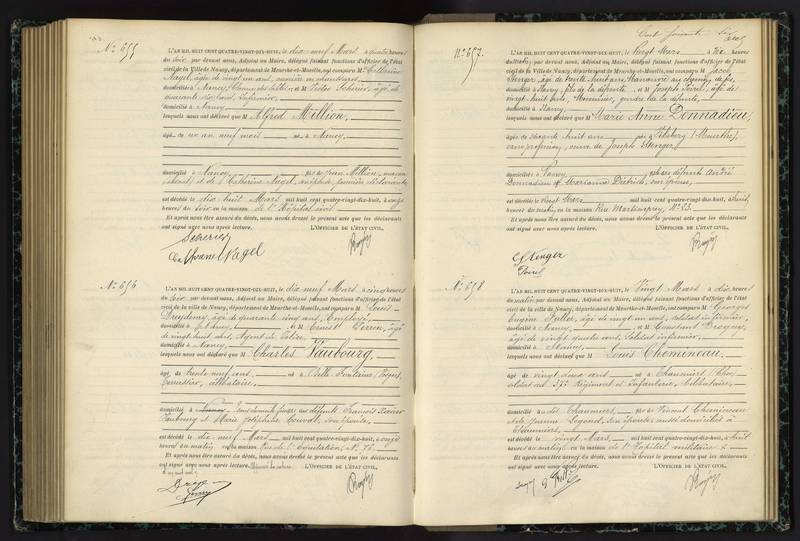 N° 655
L'AN MIL HUIT CENT QUATRE-VINGT-DIX-HUIT, le dix neuf Mars à quatre heures
du soir par devant nous, Adjoint au Maire, délégué faisant fonctions d'officier de l'état
civil de la Ville de Nancy, département de Meurthe-et-Moselle, ont comparu M Catherine
Nagel, âgée de vingt un ans, ouvrière en
domicilié à Nancy, et M Victor Scherier, âgé de
quarante ans, infirmier
domicilié à Nancy
lesquels nous ont déclaré que M Alfred Million,
âgé de un an neuf mois né à Nancy
domicilié à Nancy fils de Jean Million, maçon
(absent) et de Catherine Nagel, son épouse, première déclarante
est décédé le dix huit Mars mil huit cent quatre-vingt-dix-huit, à onze
heures du soir en la maison de l'Hôpital civil
Et après nous être assuré du décès, nous avons dressé le présent acte que les déclarants
ont signé avec nous après lecture. L'OFFICIER DE L'ÉTAT CIVIL,
Scherier
Nagel
N° 656
L'AN MIL HUIT CENT QUATRE-VINGT-DIX-HUIT, le dix neuf Mars à cinq heures
du soir, par devant nous, Adjoint au Maire, délégué faisant fonctions d'officier de l'état
civil de la ville de Nancy, département de Meurthe-et-Moselle, ont comparu M Louis
âgé de quarante cinq ans, Employé,
domicilié à et M Ernest Verrier, âgé
de vingt huit ans, Agent de Police,
domicilié à Nancy
lesquels nous ont déclaré que M Charles Faubourg,
âgé de trente neuf ans né à Belle Fontaine (Vosges)
terrassier, célibataire,
domicilié à fils des défunts François Xavier
Faubourg et Marie Joséphine Couval, son épouse,
est décédé le dix neuf Mars mil huit cent quatre-vingt-dix-huit, à onze
heures du matin en la maison Rue de l'Équitation, N° 75
Et après nous être assuré du décès, nous avons dressé le présent acte que les déclarants
ont signé avec nous après lecture. L'OFFICIER DE L'ÉTAT CIVIL,
Cent soixante six
N° 657.
L'AN MIL HUIT CENT QUATRE-VINGT-DIX-HUIT, le Vingt Mars à dix heures
du matin, par devant nous, Adjoint au Maire, délégué faisant fonctions d'officier de l'état
civil de la Ville de Nancy, département de Meurthe-et-Moselle, ont comparu M Jacob
Stenger, âgé de trente huit ans, Manoeuvre au chemin de fer,
domicilié à Nancy, fils de la défunte et M Joseph Poirel, âgé de
vingt huit ans, Menuisier, gendre de la défunte
domicilié à Nancy
lesquels nous ont déclaré que M Marie Anne Donnadieu,
âgée de soixante huit ans née à (Meurthe),
sans profession, veuve de Joseph Stenger
domiciliée à Nancy fille des défunts André
Donnadieu et Marianne Dietrich, son épouse,
est décédée le Vingt Mars mil huit cent quatre-vingt-dix-huit, à
heures du matin, en la maison Rue Martimprey, N° 23
Et après nous être assuré du décès, nous avons dressé le présent acte que les déclarants
ont signé avec nous après lecture. L'OFFICIER DE L'ÉTAT CIVIL,
Stenger
Poirel
N° 658
L'AN MIL HUIT CENT QUATRE-VINGT-DIX-HUIT, le Vingt Mars à dix heures
du matin par devant nous, Adjoint au Maire, délégué faisant fonctions d'officier de l'état
civil de la ville de Nancy, département de Meurthe-et-Moselle, ont comparu M Georges
Eugène âgé de vingt un ans, Soldat infirmier,
domicilié à Nancy, et M Constant
âgé de vingt quatre ans, Soldat infirmier,
domicilié à Nancy
lesquels nous ont déclaré que M Louis Chemineau,
âgé de vingt deux ans né à Chaumiers (Cher)
soldat au 37e Régiment d'Infanterie, célibataire,
domicilié à dit Chaumiers, fils de Vincent Chemineau
et de Jeanne Legend, son épouse, domiciliés à
Chaumiers,
est décédé le vingt Mars mil huit cent quatre-vingt-dix-huit, à huit
heures du matin, en la maison de l'Hôpital militaire
Et après nous être assuré du décès, nous avons dressé le présent acte que les déclarants
ont signé avec nous après lecture. L'OFFICIER DE L'ÉTAT CIVIL,